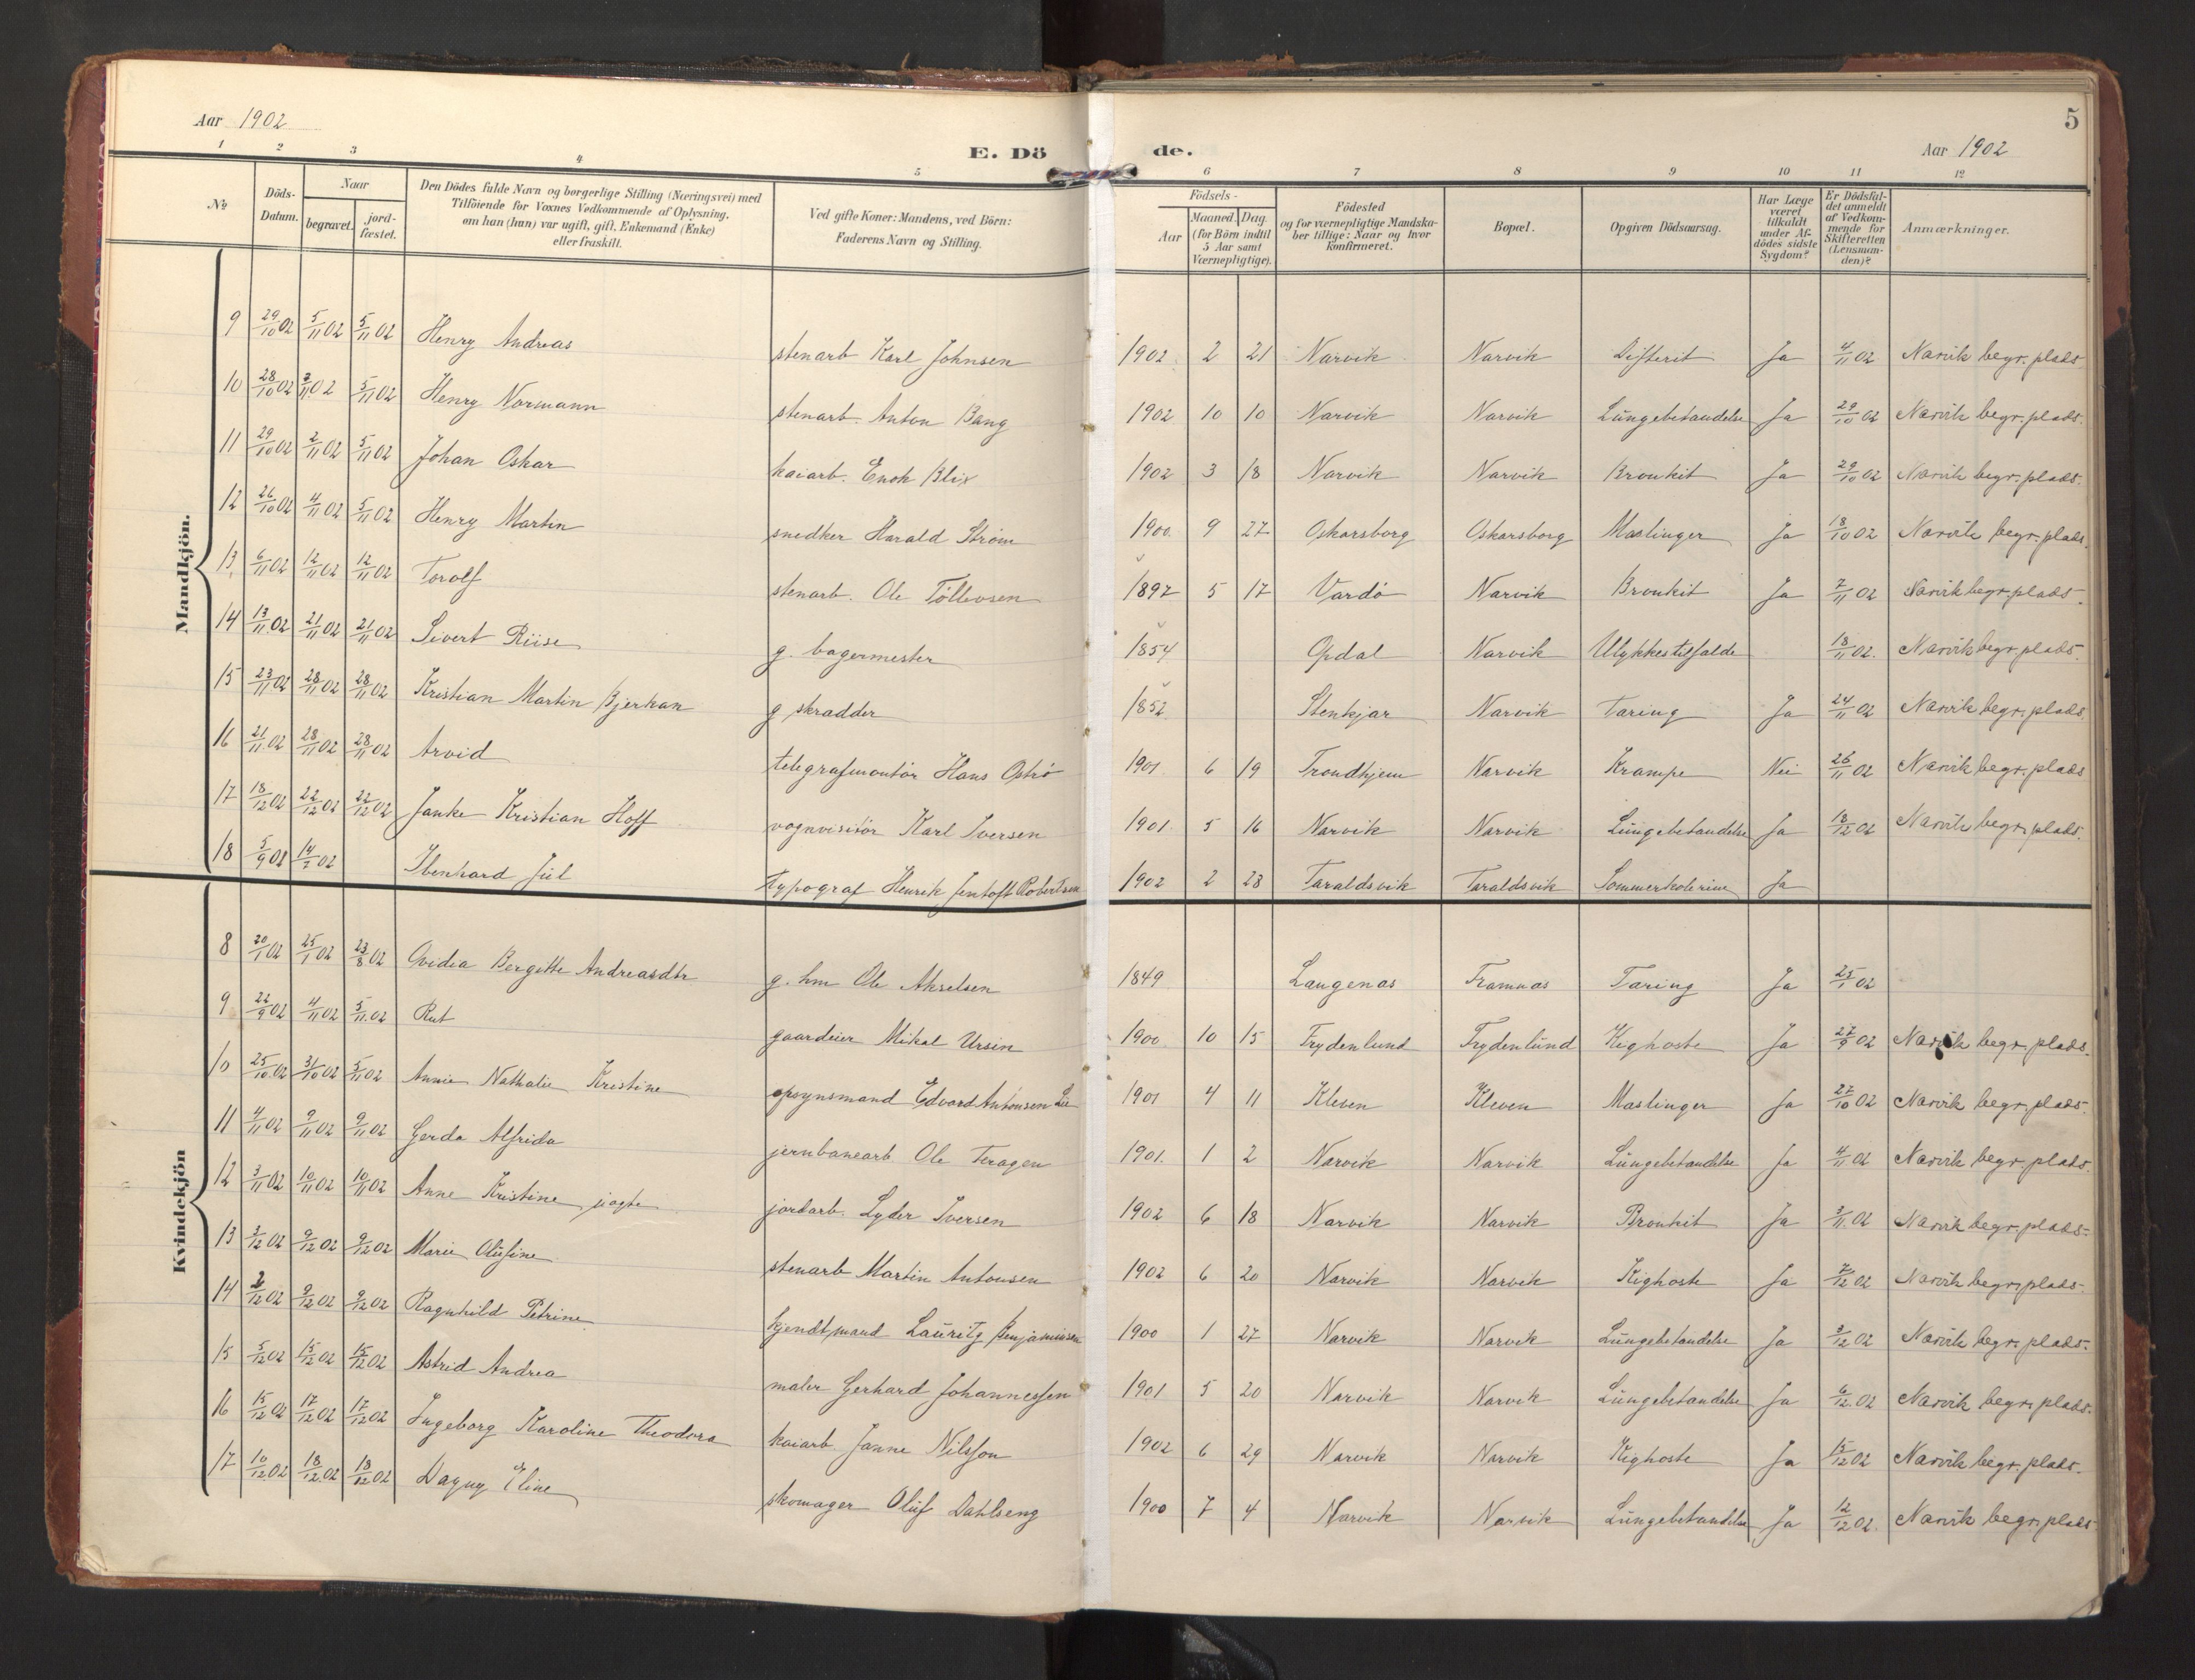 Aar 1902
E. Dö de.
5
Aar 1902
1 2 3 4 5 6 7 8 9 10 11 12
№
Döds-Datum.
Naar
begravet.
jord-fæstet.
Den Dödes fulde Navn og borgerlige Stilling (Næringsvei) med
Tilföiende for Voxnes Vedkommende af Oplysning,
om han (hun) var ugift, gift, Enkemand (Enke)
eller fraskilt.
Ved gifte Koner: Mandens, ved Börn:
Faderens Navn og Stilling.
Födsels-
Aar
Maaned. Dag.
(for Börn indtil
5 Aar samt
Værnepligtige).
Födested
og for værnepligtige Mandska-
ber tillige: Naar og hvor
Konfirmeret.
Bopæl.
Opgiven Dödsaarsag.
Har Læge
været
tilkaldt
under Af-
dödes sidste
Sygdom?
Er Dödsfal-
det anmeldt
af Vedkom-
mende for
Skifteretten
(Lensman-
den)?
Anmærkninger.
Mandkjön.
9 29/10 02 5/11 02 5/11 02 Henry Andreas stenarb Karl Johnsen 1902 2 21 Narvik Narvik Difterit Ja 4/11 02 Narvik begr. plads
10 28/10 02 2/11 02 5/11 02 Henry Normann stenarb. Anton Bang 1902 10 10 Narvik Narvik Lungebetandelse Ja 29/10 02 Narvik begr. plads.
11 29/10 02 2/11 02 5/11 02 Johan Oskar kaiarb. Enok Blix 1902 3 18 Narvik Narvik Bronkit Ja 29/10 02 Narvik begr. plads.
12 26/10 02 4/11 02 5/11 02 Henry Martin snedker Harald Strøm 1900. 9 27 Oskarsborg Oskarsborg Mæslinger Ja 18/10 02 Narvik begr. plads.
13 6/11 02 12/11 02 12/11 02 Torolf stenarb. Ole Tollevsen 1897 5 17 Vardø Narvik Bronkit Ja 7/11 02 Narvik begr. plads.
14 13/11 02 21/11 02 21/11 02 Sivert Riise g. bagermester 1854 Opdal Narvik Ulykkestilfælde 18/11 02. Narvik begr. plads.
15 23/11 02 28/11 02 28/11 02 Kristian Martin Bjerkan g skrædder 1852 Stenkjær Narvik Tæring Ja 24/11 02 Narvik begr. plads.
16 21/11 02 28/11 02 28/11 02 Arvid telegrafmontør Hans Ostrø 1901 6 19 Trondhjem Narvik Krampe Nei 26/11 02 Narvik begr. plads
17 18/12 02 22/12 02 22/12 02 Janke Kristian Hoff vognvisitør Karl Iversen 1901. 5 16 Narvik Narvik Lungebetandelse Ja 18/12 02 Narvik begr. plads.
18 5/9 02 14/9 02 Ibenhard Jul typograf Henrik Jentoft Robertsen 1902 2 28 Taraldsvik Taraldsvik Sommerkolerine Ja
Kvindekjön
8 20/1 02 25/1 02 23/8 02 Ovidia Bergitte Andreasdtr g. hm Ole Akselsen 1849 Langenæs Framnæs Tæring Ja 25/1 02
9 22/9 02 4/11 02 5/11 02 Rut gaardeier Mikal Ursin 1900. 10 15 Frydenlund Frydenlund Kighoste Ja 27/9 02 Narvik begr. plads.
10 25/10 02 31/10 02 5/11 02 Annie Nathalie Kristine opsynsmand Edvard Antonsen Lie 1901 4 11 Kleven Kleven Mæslinger Ja 27/10 02 Narvik begr. plads.
11 4/11 02 9/11 02 9/11 02 Gerda Alfrida jernbanearb Ole Teragen 1901. 1 2 Narvik Narvik Lungebetandelse Ja 4/11 02 Narvik begr. plads.
12 3/11 02 10/11 02 10/11 02 Anne Kristine jordarb. Lyder Iversen 1902 6 18 Narvik Narvik Bronkit Ja 3/11 02 Narvik begr. plads.
13 3/12 02 9/12 02 9/12 02 Marie Olufine stenarb Martin Antonsen 1902 6 20 Narvik Narvik Kighoste Ja 7/12 02 Narvik begr. plads.
14 2/12 02 9/12 02 9/12 02 Ragnhild Petrine kjendtmand Lauritz Benjaminsen 1900 1 27 Narvik Narvik Lungebetandelse Ja 3/12 02 Narvik begr. plads.
15 5/12 02 15/12 02 15/12 02 Astrid Andrea maler Gerhard Johannessen 1901 5 20 Narvik Narvik Lungebetandelse Ja 6/12 02 Narvik begr. plads.
16 15/12 02 17/12 02 17/12 02 Ingeborg Karoline Theodora kaiarb Janne Nilsson 1902 6 29 Narvik Narvik Kighoste Ja 15/12 02 Narvik begr. plads.
17 10/12 02 18/12 02 18/12 02 Dagny Eline skomager Oluf Dahlseng 1900 7 4 Narvik Narvik Lungebetandelse Ja 12/12 02. Narvik begr. plads